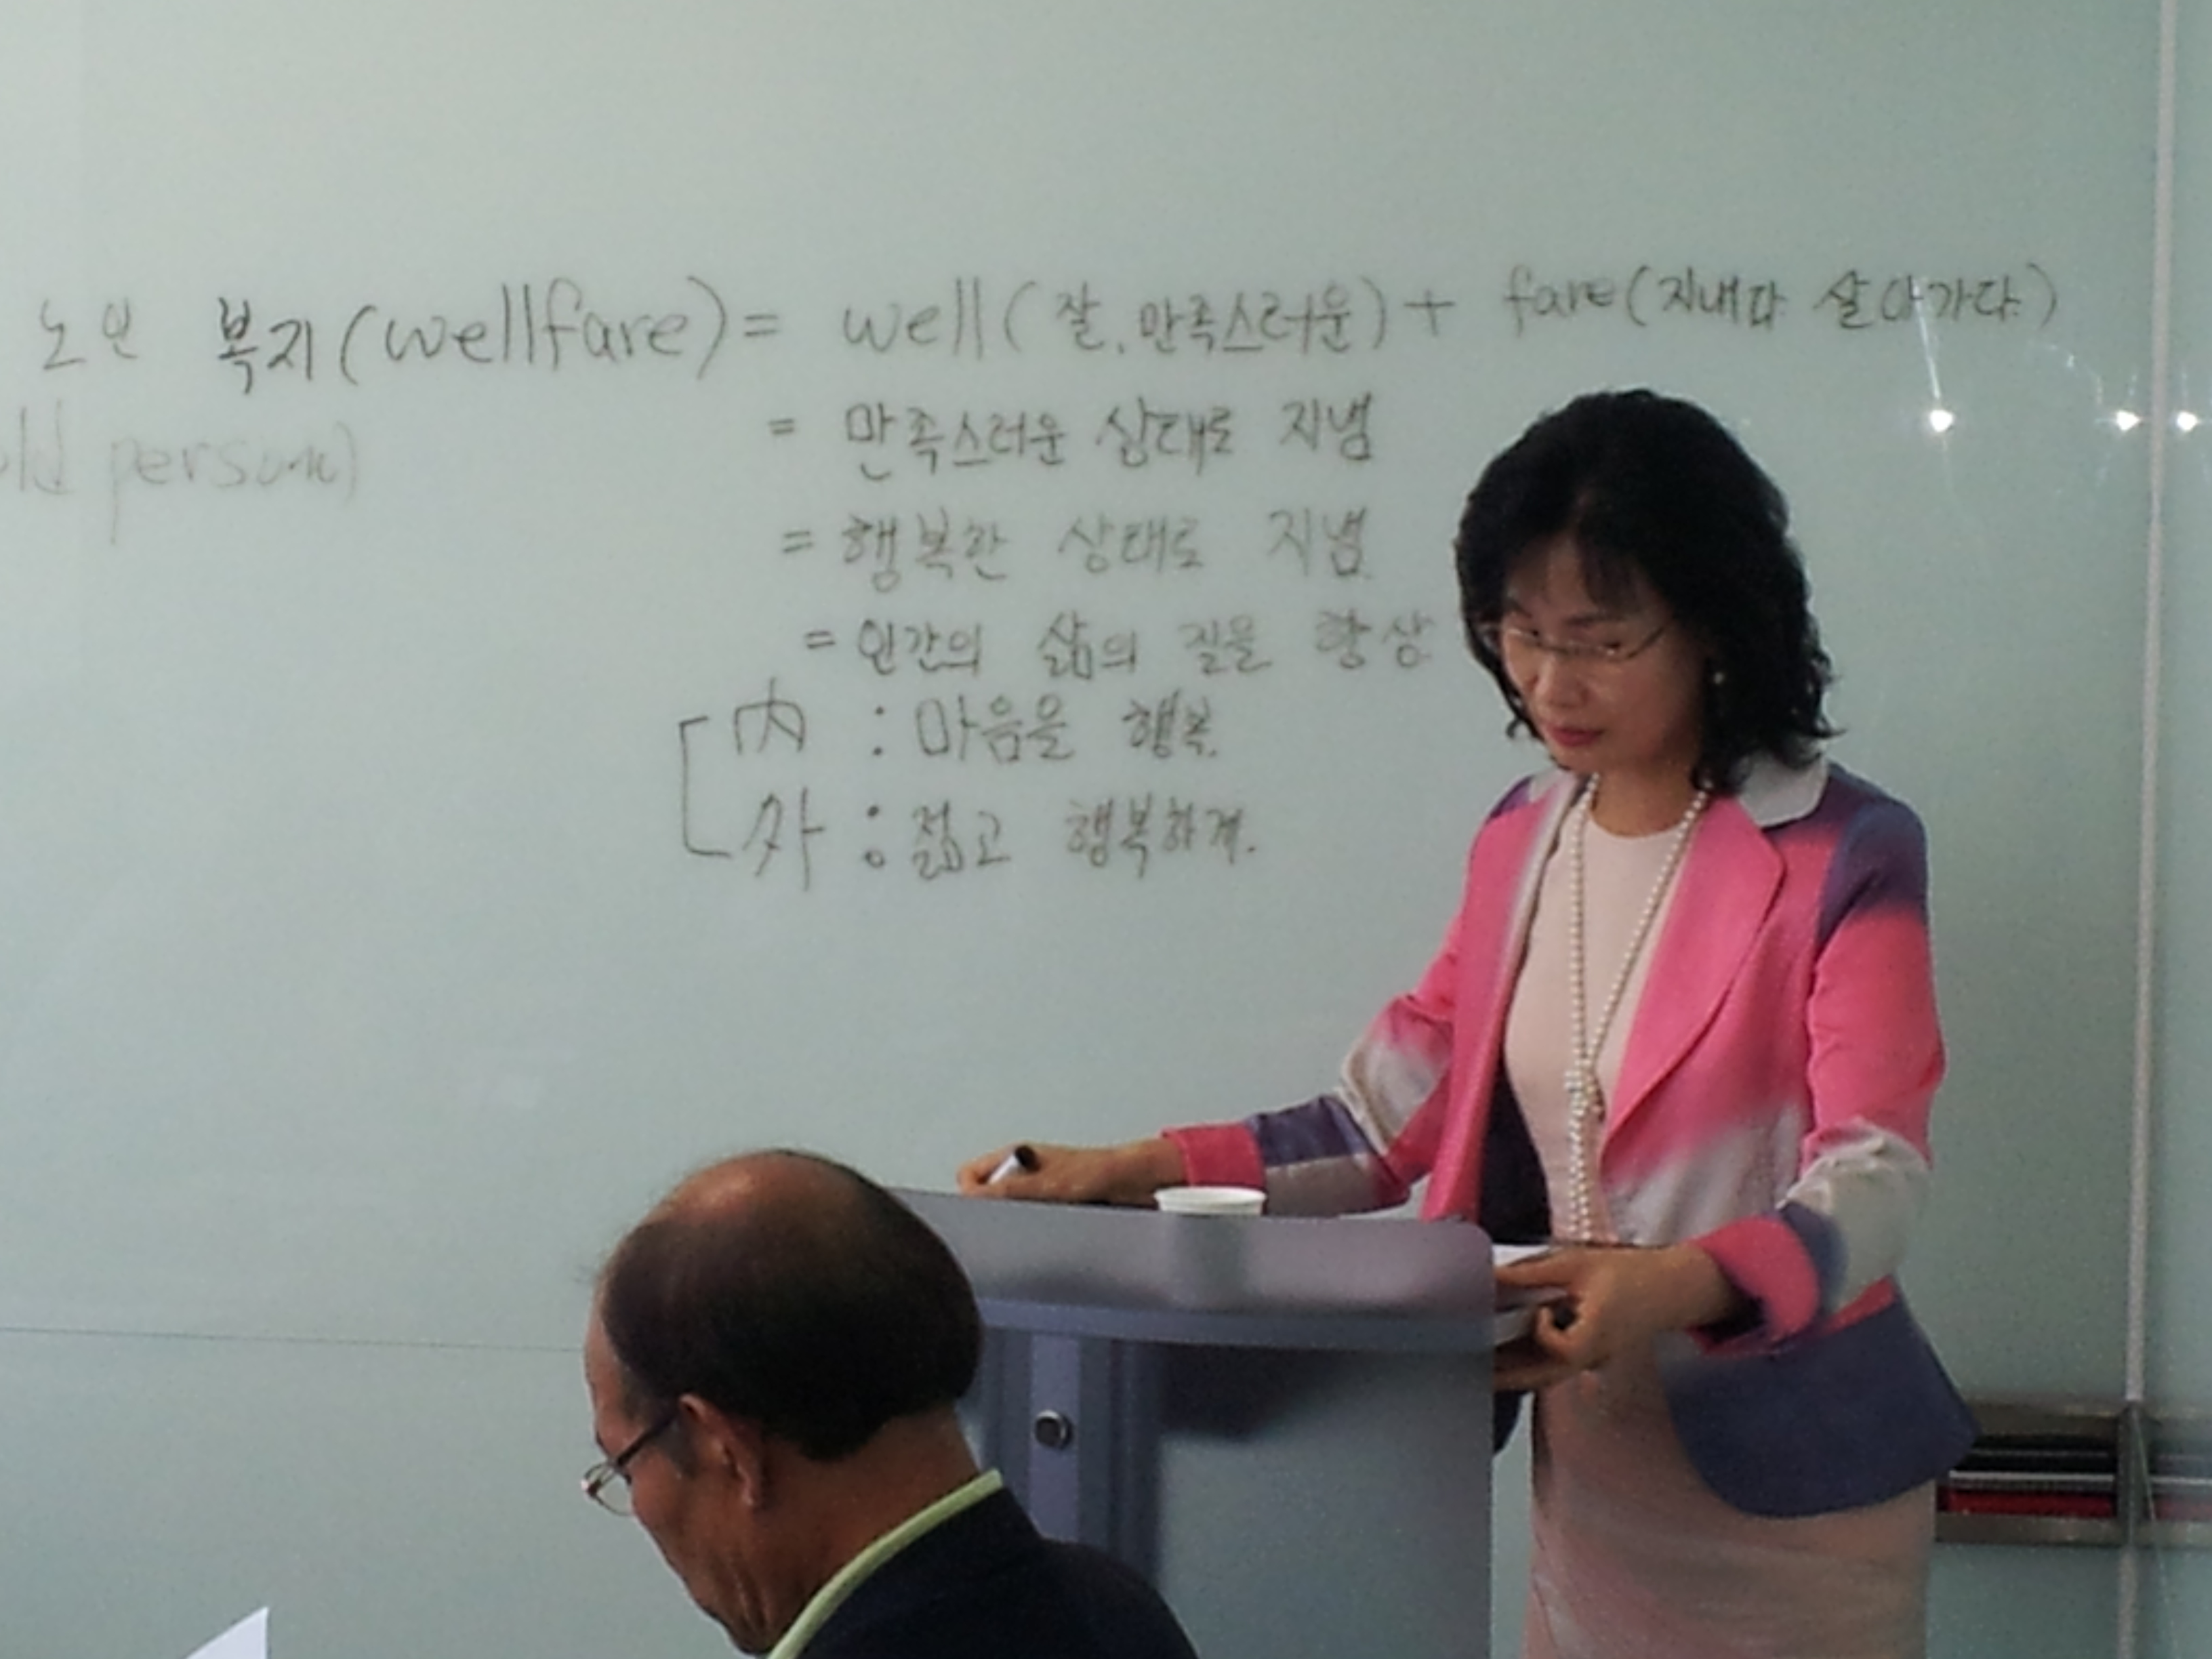 노인 복지(wellfare) = well(잘, 만족스러운) + fare(지내다 살아가다)
old person)
= 만족스러운 상태로 지냄
= 행복한 상태로 지냄
= 인간의 삶의 질을 향상
内 : 마음을 행복.
外 : 젊고 행복하게.